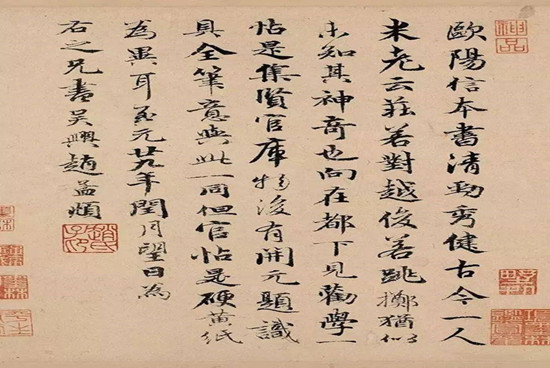 神品
歐陽信本書清勁秀健古今一人
米老云莊若對越俊若跳擲猶似
未知其神奇也向在都下見勸學一
帖是集賢官庫物後有開元題識
具全筆意與此一同但官帖是硬黃紙
為異耳至元廿九年閏月望日為
右之兄書吳興趙孟頫